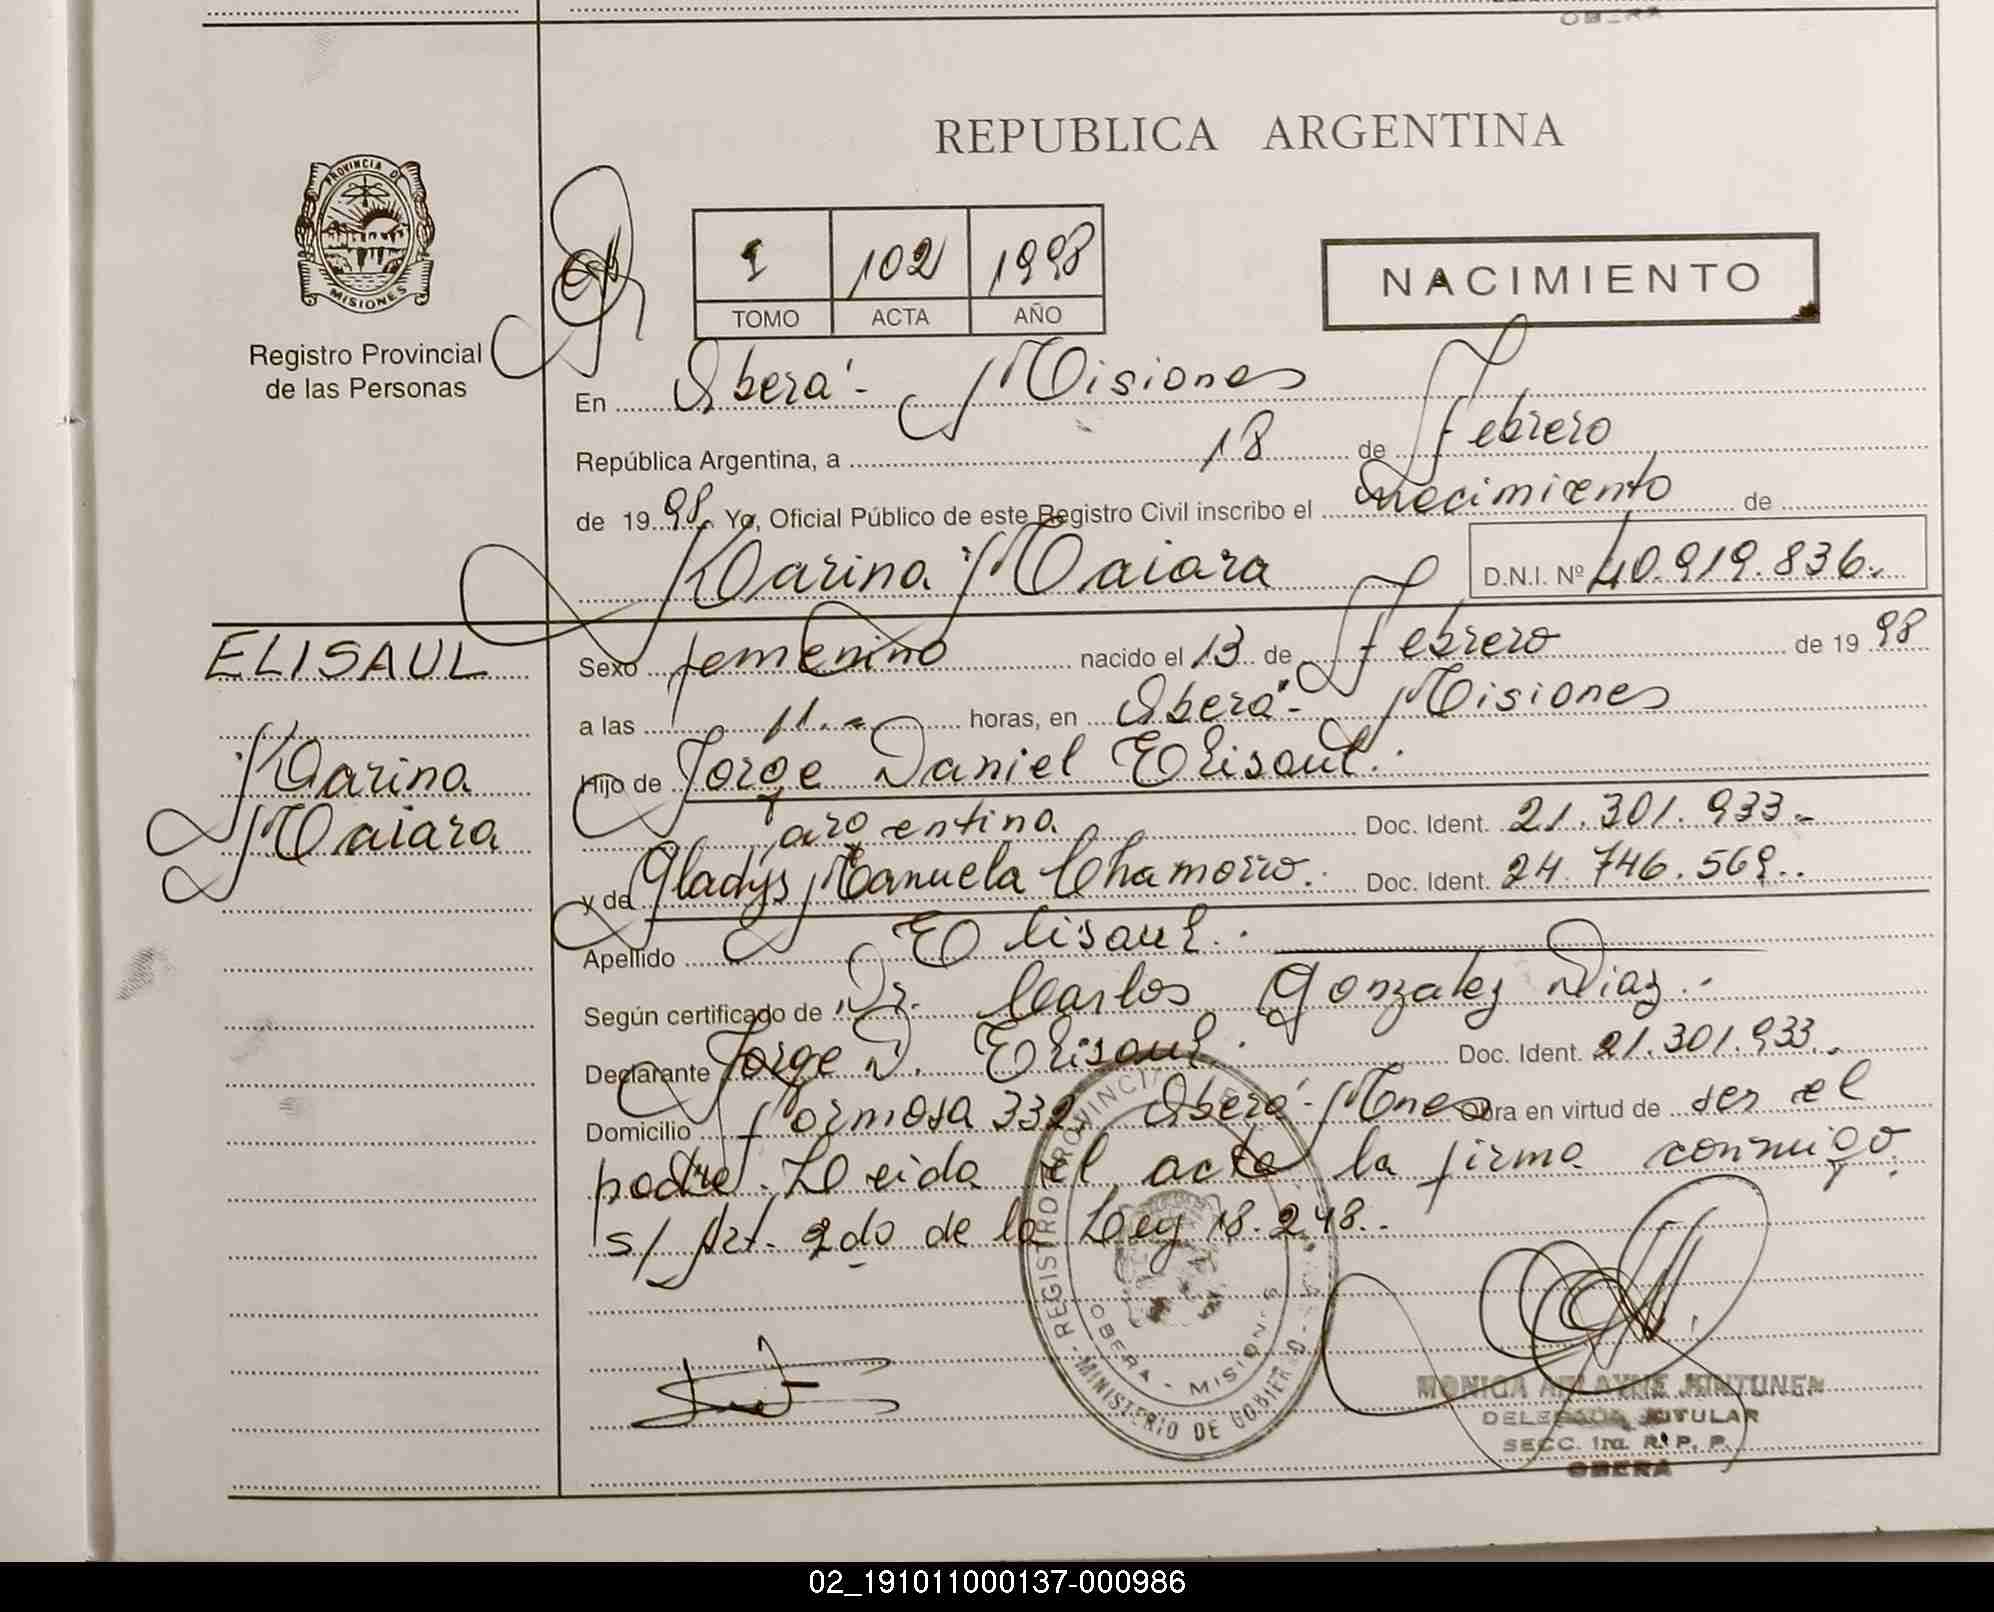 REPUBLICA ARGENTINA
PROVINCIA DE
MISIONES
Registro Provincial
de las Personas
1 102 1998
TOMO ACTA AÑO
NACIMIENTO
En Oberá - Misiones
República Argentina, a 18 de Febrero
de 1998. Yo, Oficial Público de este Registro Civil inscribo el nacimiento de
Karina Maiara D.N.I. Nº 40.919.836.
ELISAUL
Karina
Maiara
Sexo femenino nacido el 13 de Febrero de 1998
a las 11.- horas, en Oberá - Misiones
Hijo de Jorge Daniel Elisaul.
argentino. Doc. Ident. 21.301.933.-
y de Gladys Manuela Chamorro. Doc. Ident. 24.746.569..
Apellido Elisaul.
Según certificado de Dr. Carlos Gonzalez Diaz..
Declarante Jorge D. Elisaul. Doc. Ident. 21.301.933.
Domicilio Formosa 332 Oberá - Mnes Obra en virtud de ser el
padre. Leida el acta la firma conmigo.
s/ Art. 2do de la Ley 18.248..
REGISTRO PROVINCIAL DE
OBERA - MISIONES
MINISTERIO DE GOBIERNO
MONICA KINTUNEN
DELEGADA TITULAR
SECC. 1ra. R. P. P.
OBERA
02_191011000137-000986